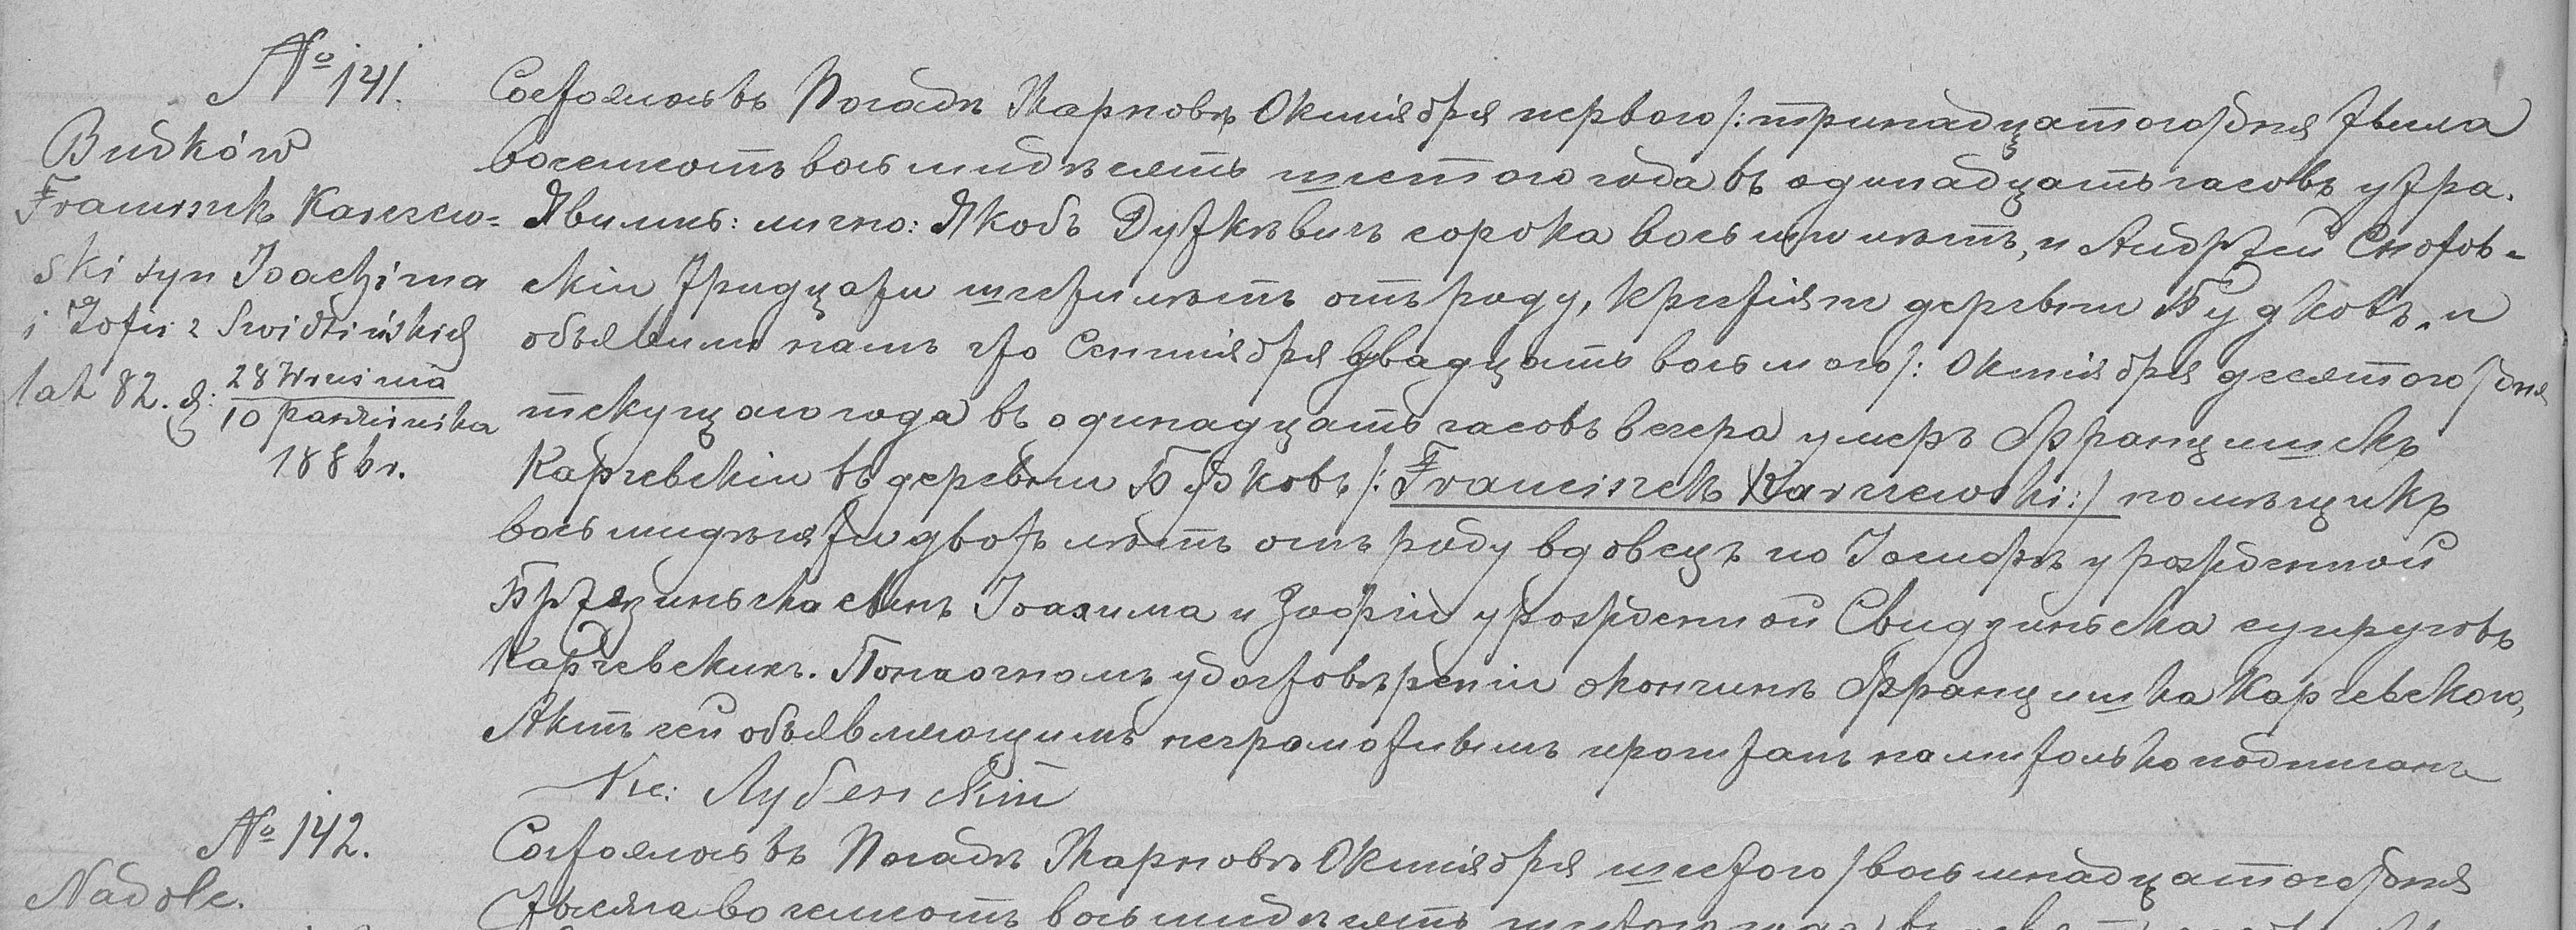 № 141.
Budków
Franciszek Karczew=
ski syn Joachima
i Zofii z Swidzińskich
lat 82. d: 28 Września
10 października
1886 r.
Состоялось въ Посадѣ Жарновѣ Октября перваго /: тринадцатого / дня тысяча
восемьсотъ восьмидесятъ шестого года въ одинадцать часовъ утра.
Явились: лично: Якобъ Дуткѣвичъ сорока восьми лѣтъ, и Андржей Снотов-
скіи тридцати шести лѣтъ отъ роду, крестіяне деревни Будковъ, и
объявили намъ что Сентября двадцать восьмого /: Октября десятого / дня
текущаго года въ одинадцать часовъ вечера умеръ Францишекъ
Карчевскіи въ деревни Будковъ /: Franciszek Karczewski :/ помѣщикъ
восьмидѣсяти двохъ лѣтъ отъ роду вдовецъ по Іосифѣ урожденной
Бржезинска сынъ Іоахима и Зофіи урожденной Свидзинска супруговъ
Карчевскихъ. По наочномъ удостовѣреніи окончинѣ Францишка Карчевского,
Актъ сей объявляющимъ неграмотнымъ прочитанъ нами только подписанъ
Кс: Лубенскій
№ 142.
Nadole.
Состоялось въ Посадѣ Жарновѣ Октября шестого / восьмнадцатого / дня
тысяча восемьсотъ восьмидесятъ шестого года въ